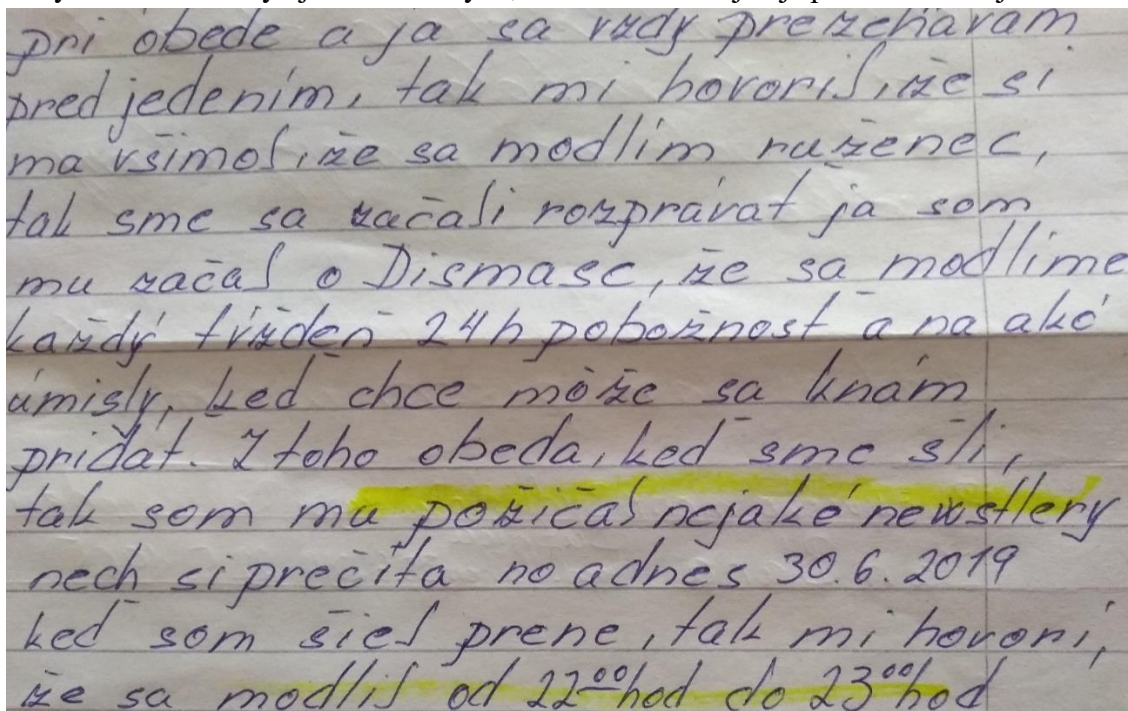 pri obede a ja sa vždy prežehávam
pred jedením, tak mi hovoril, že si
ma všimol, že sa modlím ruženec,
tak sme sa začali rozprávat ja som
mu začal o Dismase, že sa modlíme
každý tíždeň 24h pobožnost a na aké
úmisly, keď chce môže sa knám
pridať. Z toho obeda, keď sme šli,
tak som mu požičal nejaké newstlery
nech si prečíta no a dnes 30.6.2019
keď som šiel prene, tak mi hovorí,
že sa modlil od 22⁰⁰hod do 23⁰⁰hod